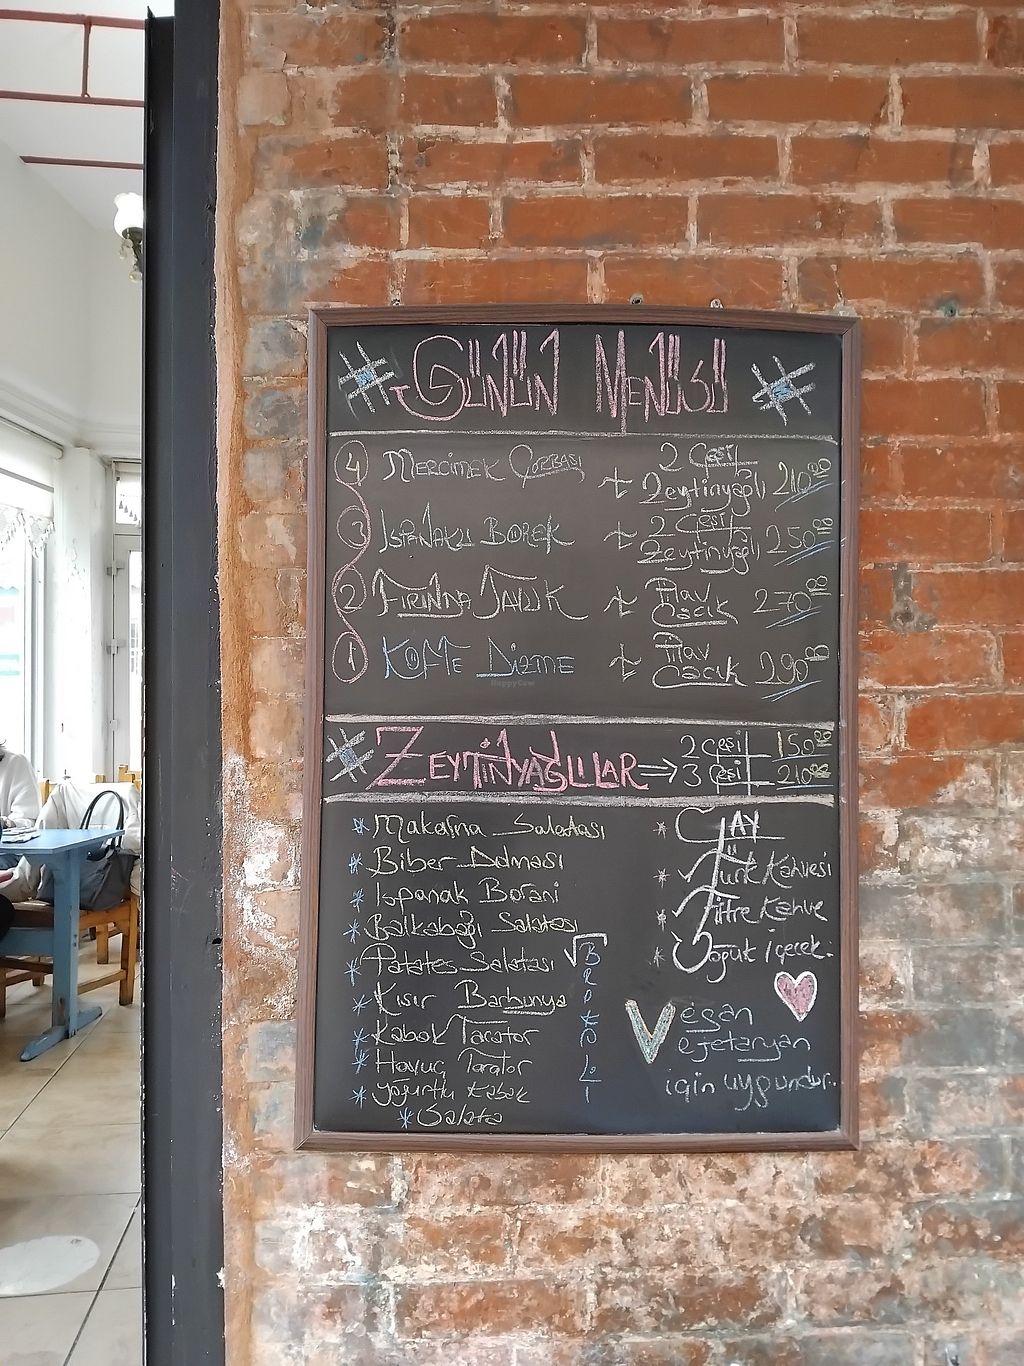 # GÜNÜN MENÜSÜ #
4 MERCİMEK ÇORBASI + 2 Çeşit Zeytinyağlı 210.00
3 ISPANAKLI BÖREK + 2 Çeşit Zeytinyağlı 250.00
2 FIRINDA TAVUK + Pilav Cacık 270.00
1 KÖFTE DİZME + Pilav Cacık 290.00
# ZEYTİNYAĞLILAR → 2 Çeşit 150.00
3 Çeşit 210.00
* Makarna Salatası
* Biber Dolması
* Ispanak Borani
* Balkabağı Salatası
* Patates Salatası
* Kısır Barbunya
* Kabak Tarator
* Havuç Tarator
* Yoğurtlu Kabak
* Salata
√ BROKOLİ
* ÇAY
* Türk Kahvesi
* Filtre Kahve
* Soğuk içecek.
Vegan
Vejetaryan
için uygundur.